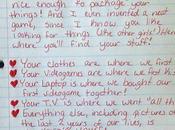 nice enough to package your
things! And I even invented a neat
game, Since I know you like
looking for things like other girls! Here's
where you'll find your stuff!
Your clothes are where we first
Your videogames are where we first
Your Laptop is where we bought our
first videogame together!
Your T.V. is where we went "all th
Everything else, including pictures of
the last 2 years of our lives, is